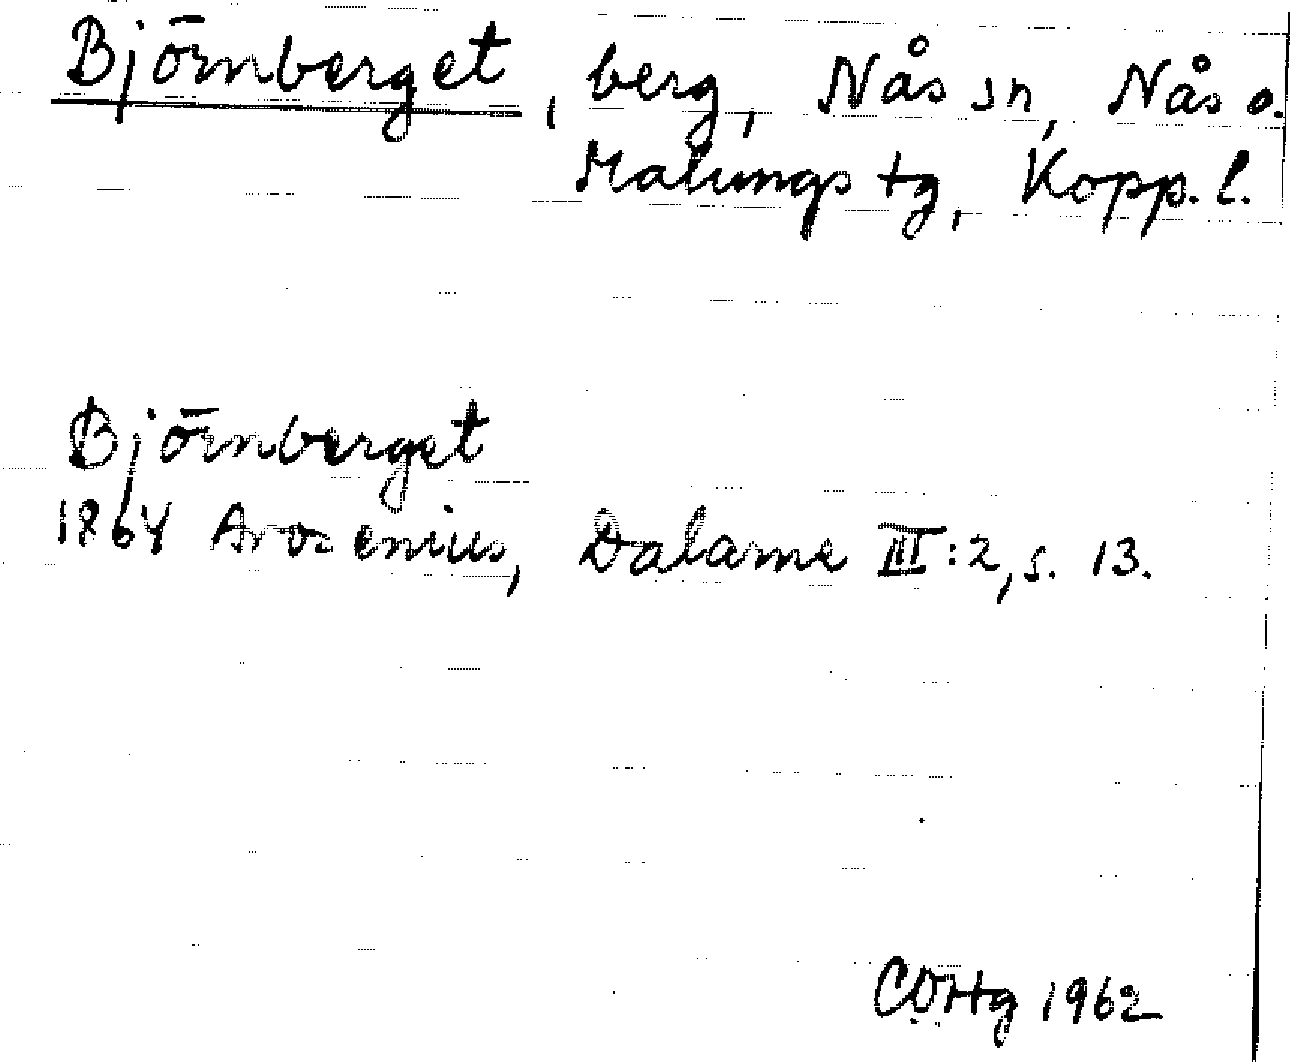 Björnberget, berg, Nås sn, Nås o.
Malungs tg, Kopp. l.
Björnberget
1864 Arosenius, Dalarne III:2, s. 13.
COHg 1962